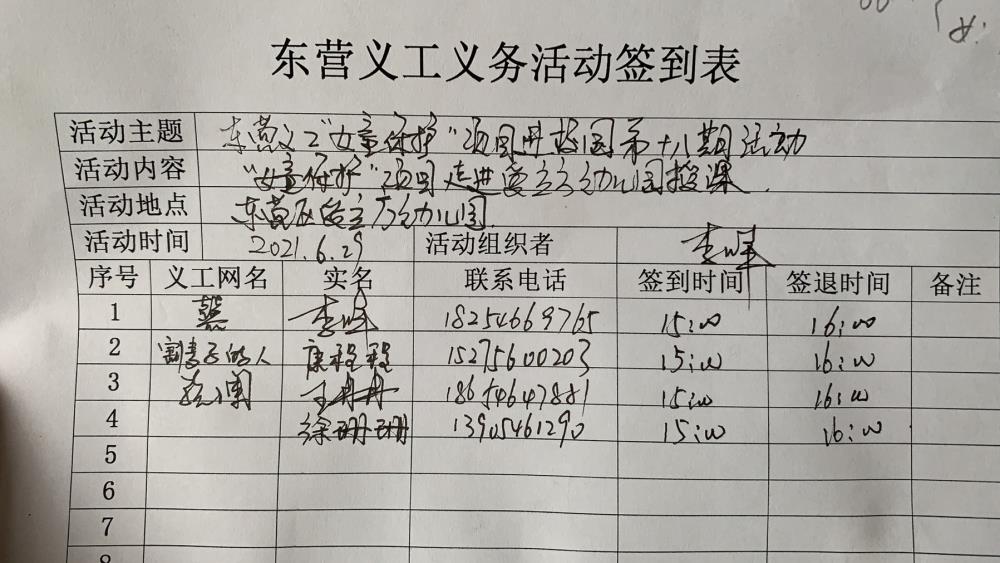 东营义工义务活动签到表
活动主题 东营义工"女童保护"项目进校园第十八期活动
活动内容 "女童保护"项目走进 幼儿园授课.
活动地点 东营区 幼儿园
活动时间 2021.6.29 活动组织者 李
序号 义工网名 实名 联系电话 签到时间 签退时间 备注
1 李 18254669765 15:00 16:00
2 割麦子的人 康程程 15275600203 15:00 16:00
3 王冉冉 18654647881 15:00 16:00
4 徐珊珊 13905461290 15:00 16:00
5
6
7
8